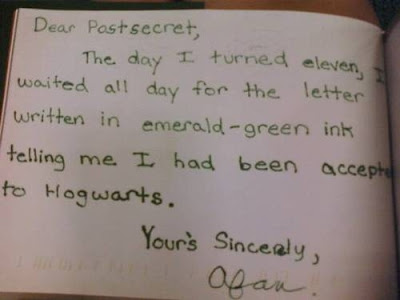 Dear Postsecret,
The day I turned eleven, I
waited all day for the letter
written in emerald-green ink
telling me I had been accepte
to Hogwarts.
Your's Sincerly,